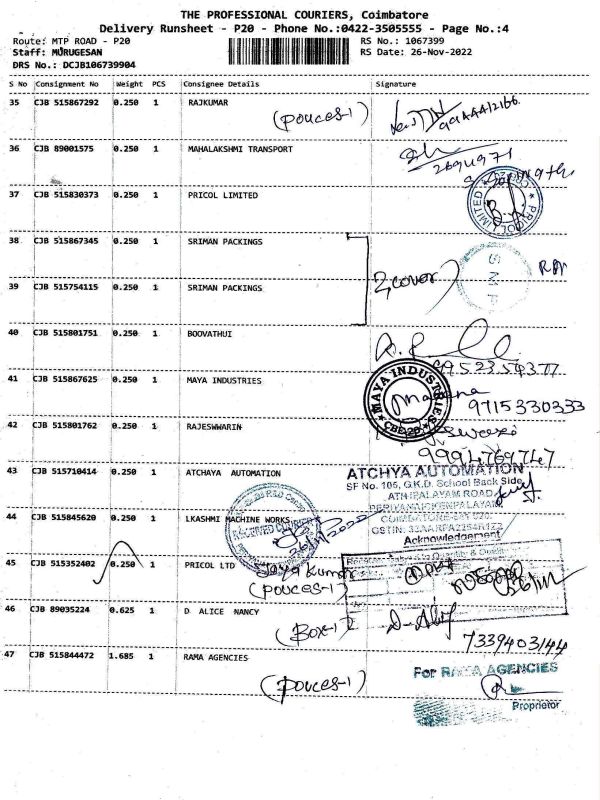 THE PROFESSIONAL COURIERS, Coimbatore
Delivery Runsheet - P20 - Phone No.:0422-3505555 - Page No.:4
Route: MTP ROAD - P20 RS No.: 1067399
Staff: MURUGESAN RS Date: 26-Nov-2022
DRS No.: DCJB106739904
S No Consignment No Weight PCS Consignee Details Signature
35 CJB 515867292 0.250 1 RAJKUMAR
(pouces-1)
36 CJB 89001575 0.250 1 MAHALAKSHMI TRANSPORT
2694971
37 CJB 515830373 0.250 1 PRICOL LIMITED
PRICOL LIMITED
38 CJB 515867345 0.250 1 SRIMAN PACKINGS
2 cover)
39 CJB 515754115 0.250 1 SRIMAN PACKINGS
40 CJB 515801751 0.250 1 BOOVATHUI
9952359377
41 CJB 515867625 0.250 1 MAYA INDUSTRIES
MAYA INDUSTRIES
9715330333
42 CJB 515801762 0.250 1 RAJESWWARIN
9994769747
43 CJB 515710414 0.250 1 ATCHAYA AUTOMATION
ATCHYA AUTOMATION
SF No. 105, G.K.D. School Back Side
ATHIPALAYAM ROAD
Acknowledgement
44 CJB 515845620 0.250 1 LKASHMI MACHINE WORKS
26/11/2022
45 CJB 515352402 0.250 1 PRICOL LTD
Jaya Kumar
(pouces-1)
46 CJB 89035224 0.625 1 D ALICE NANCY
(Box-1)
7339403144
47 CJB 515844472 1.685 1 RAMA AGENCIES
(pouces-1)
For RAMA AGENCIES
Proprietor